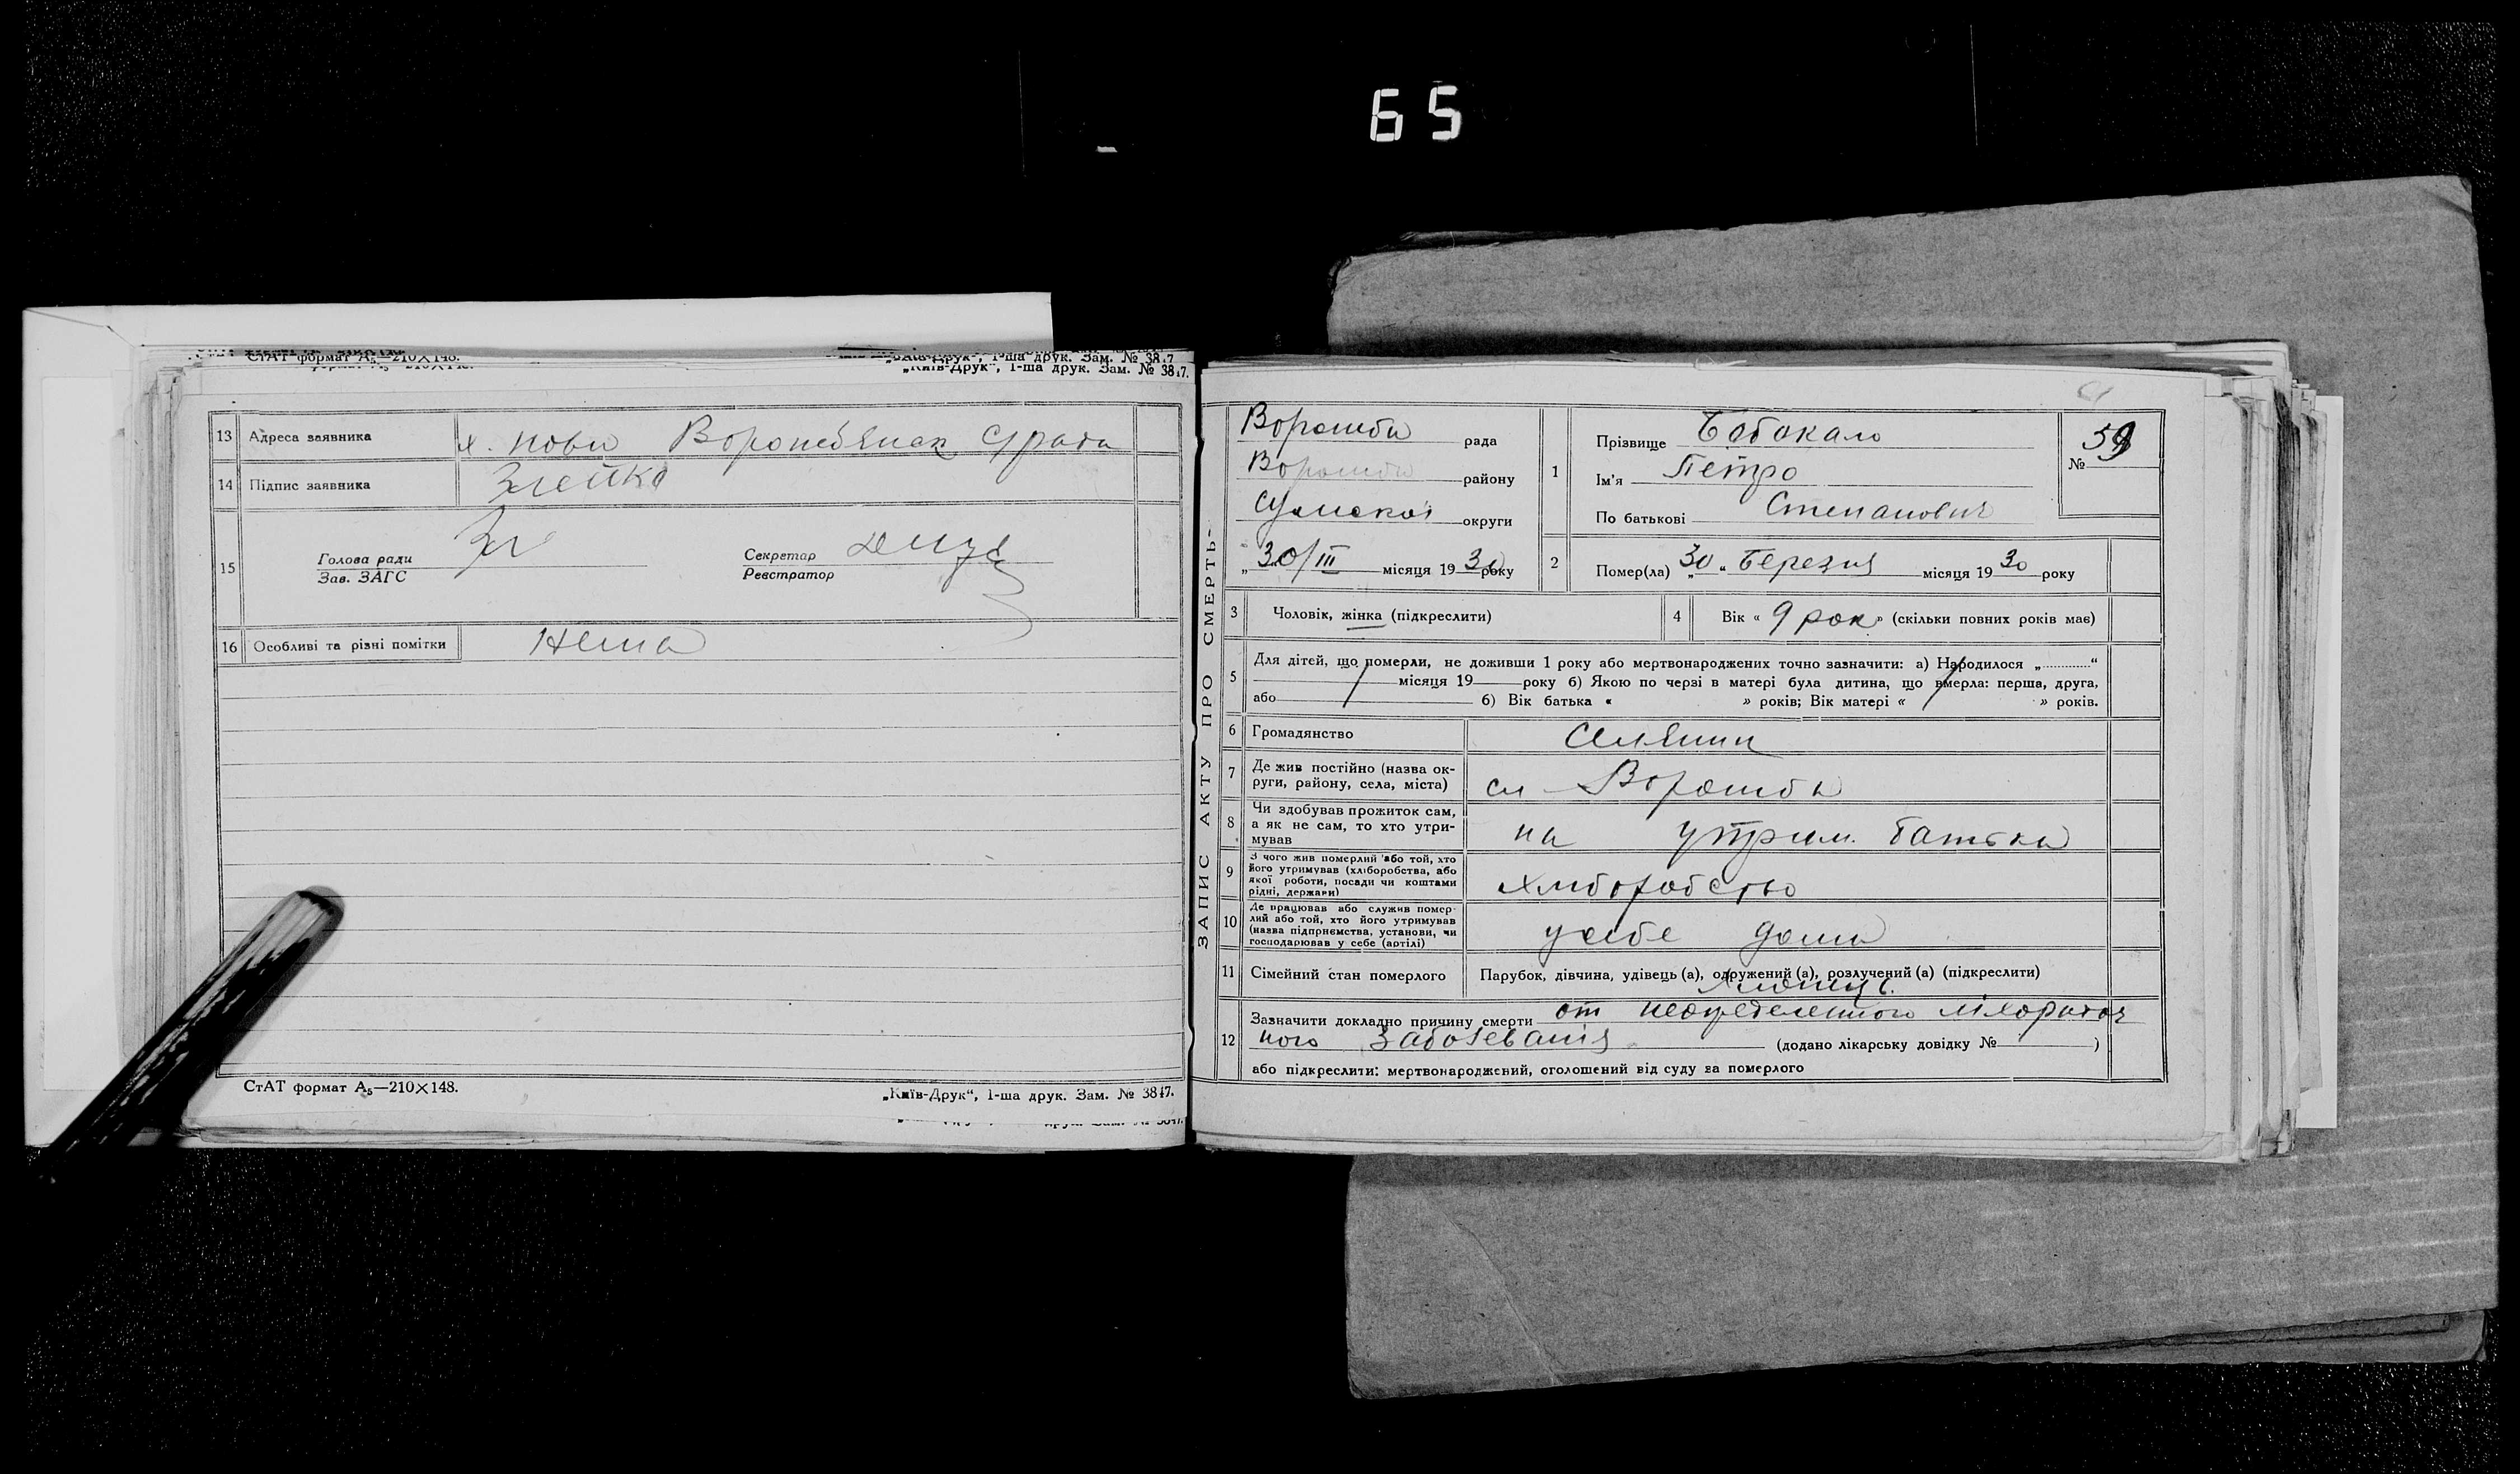 65
СтАТ формат А₅—210×148.
„Київ-Друк“, 1-ша друк. Зам. № 3847.
13 Адреса заявника х. нови Ворожбянск с/рата
14 Підпис заявника
15 Голова ради
Зав. ЗАГС
Секретар
Реєстратор
16 Особливі та різні помітки Нема
СтАТ формат А₅—210×148.
„Київ-Друк“, 1-ша друк. Зам. № 3847.
ЗАПИС АКТУ ПРО СМЕРТЬ
Ворожба рада
Ворожба району
Сумскої округи
„30/III місяця 1930 року
1 Прізвище Бабакало
Ім'я Петро
По батькові Степанович
№ 59
2 Помер(ла) „30“ Березня місяця 1930 року
3 Чоловік, жінка (підкреслити)
4 Вік « 9 рок » (скільки повних років має)
5 Для дітей, що померли, не доживши 1 року або мертвонароджених точно зазначити: а) Народилося „ “
місяця 19 року б) Якою по черзі в матері була дитина, що вмерла: перша, друга,
або б) Вік батька « » років; Вік матері « » років.
6 Громадянство Селянин
7 Де жив постійно (назва ок-
руги, району, села, міста) сл Ворожба
8 Чи здобував прожиток сам,
а як не сам, то хто утри-
мував на утрим. батька
9 З чого жив померлий або той, хто
його утримував (хліборобства, або
якої роботи, посади чи коштами
рідні, держави) хліборобство
10 Де працював або служив помер-
лий або той, хто його утримував
(назва підприємства, установи, чи
господарював у себе (артілі) у себе дома
11 Сімейний стан померлого Парубок, дівчина, удівець (а), одружений (а), розлучений (а) (підкреслити)
Хлопець.
12 Зазначити докладно причину смерти от неопределенного ліхорадоч
ного заболеванія (додано лікарську довідку № )
або підкреслити: мертвонароджений, оголошений від суду за померлого